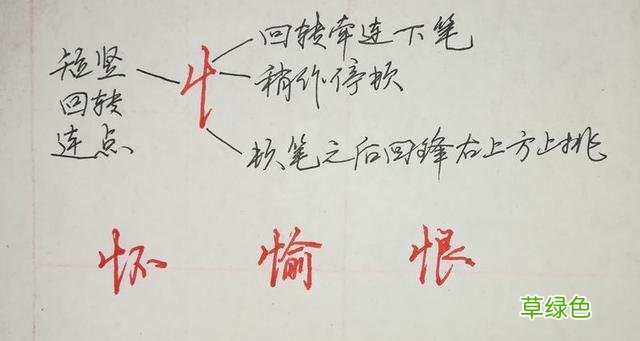 短竖
回转
连点
忄
回转牵连下笔
稍作停顿
顿笔之后回锋右上方上挑
怀 愉 恨
草绿色